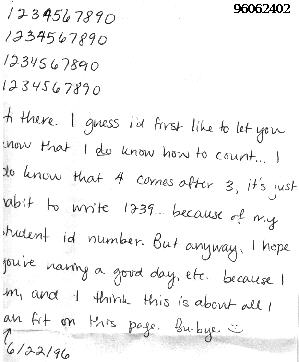 96062402
1234567890
1234567890
1234567890
1234567890
there. I guess i'd first like to let you
know that I do know how to count... I
do know that 4 comes after 3, it's just
habit to write 1239.. because of my
student id number. But anyway, I hope
you're having a good day, etc. because I
'm, and I think this is about all I
can fit on this page. Bu-bye. :)
6/22/96